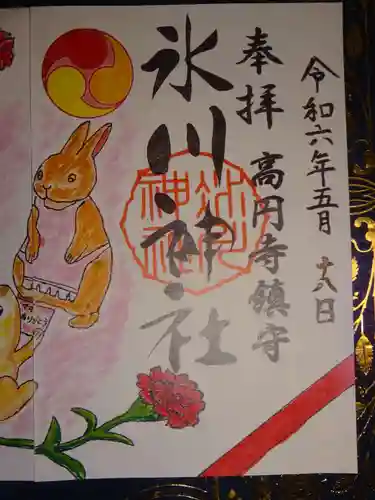 令和六年五月十八日
奉拝 高円寺鎮守
氷川神社
氷川神社
ありがとう